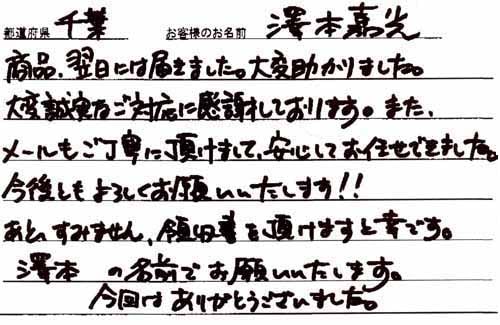 都道府県 千葉 お客様のお名前 澤本嘉光
商品、翌日には届きました。大変助かりました。
大変誠実なご対応に感謝しております。また、
メールもご丁寧に頂けまして、安心してお任せできました。
今後ともよろしくお願いいたします!!
あと、すみません、領収書を頂けますと幸です。
澤本 の名前でお願いいたします。
今回はありがとうございました。